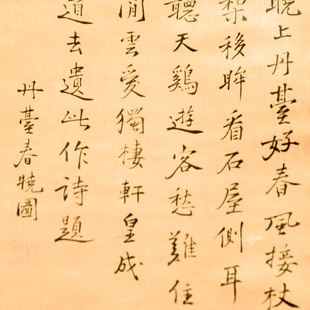 晚上丹臺好春風接杖
移眸看石屋側耳
聽天鷄遊客愁難住
閒雲愛獨棲軒皇成
道去遺此作詩題
丹臺春曉圖